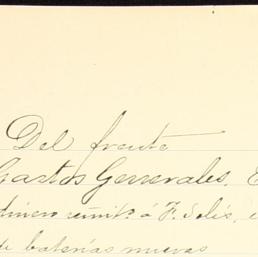 Del frente
Gastos Generales. E
dinero remito. á F. Solís, e
de baterías nuevas